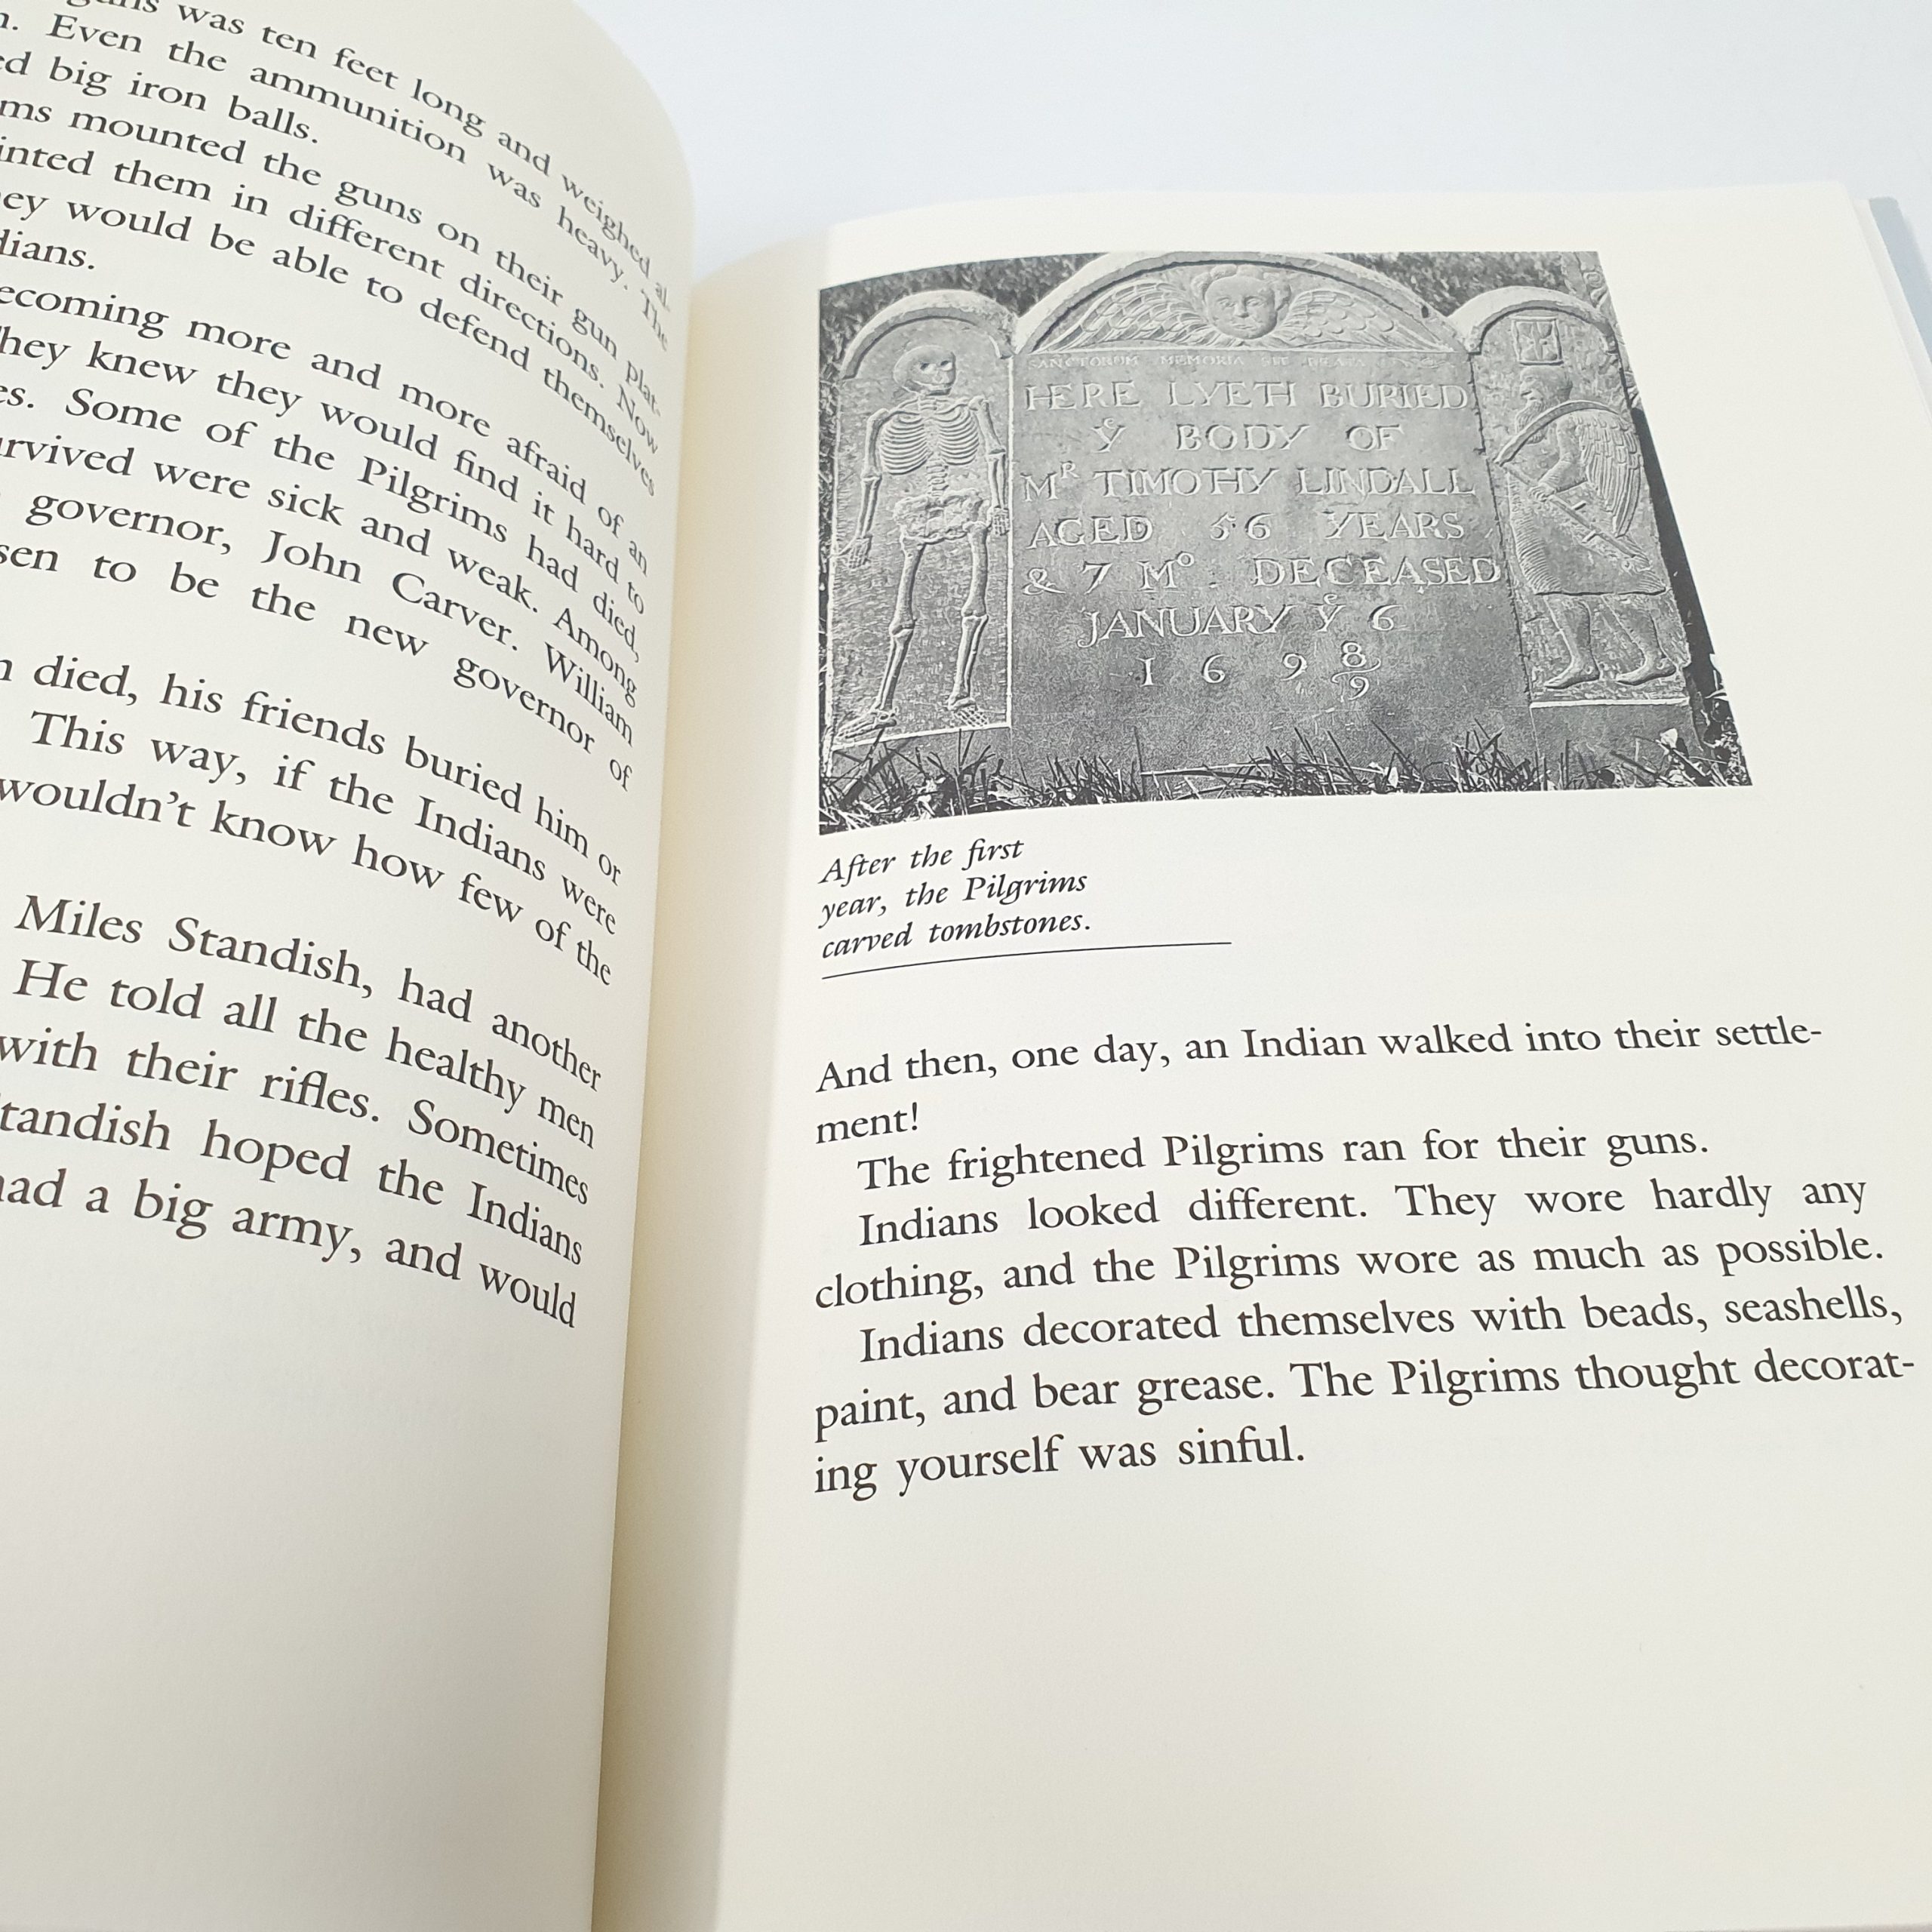 was ten feet long and weighed al-
Even the ammunition was heavy. The
big iron balls.
mounted the guns on their gun plat-
them in different directions. Now
would be able to defend themselves
more and more afraid of an
knew they would find it hard to
Some of the Pilgrims had died,
were sick and weak. Among
governor, John Carver. William
to be the new governor of
died, his friends buried him or
This way, if the Indians were
wouldn't know how few of the
Miles Standish, had another
He told all the healthy men
with their rifles. Sometimes
hoped the Indians
a big army, and would
SANCTORUM MEMORIA SIT BEATA
HERE LYETH BURIED
Yᵉ BODY OF
Mᴿ TIMOTHY LINDALL
AGED 56 YEARS
& 7 Mᵒ. DECEASED
JANUARY Yᵉ 6
169 8/9
After the first
year, the Pilgrims
carved tombstones.
And then, one day, an Indian walked into their settle-
ment!
The frightened Pilgrims ran for their guns.
Indians looked different. They wore hardly any
clothing, and the Pilgrims wore as much as possible.
Indians decorated themselves with beads, seashells,
paint, and bear grease. The Pilgrims thought decorat-
ing yourself was sinful.